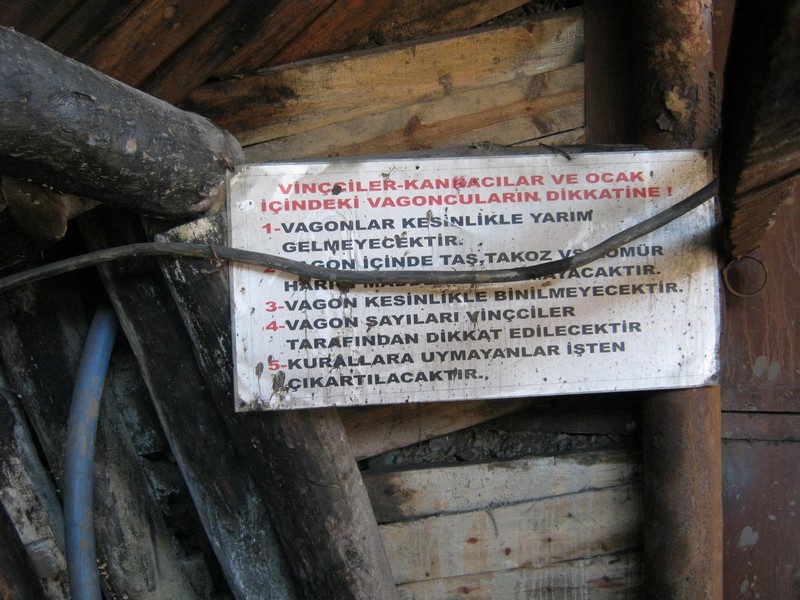 VİNÇCİLER-KANCACILAR VE OCAK
İÇİNDEKİ VAGONCULARIN DİKKATİNE !
1-VAGONLAR KESİNLİKLE YARIM
GELMEYECEKTİR.
2-VAGON İÇİNDE TAŞ,TAKOZ VS KÖMÜR
3-VAGON KESİNLİKLE BİNİLMEYECEKTİR.
4-VAGON SAYILARI VİNÇCİLER
TARAFINDAN DİKKAT EDİLECEKTİR
5-KURALLARA UYMAYANLAR İŞTEN
ÇIKARTILACAKTIR.